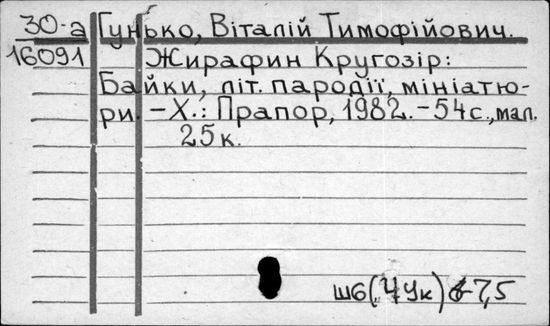 30-а Гунько, Віталій Тимофійович.
16091 Жирафин Кругозір:
Байки, літ. пародії, мініатю-
ри. – Х.: Прапор, 1982. – 54 с., мал.
25 к.
Ш6(4Ук) 7,5